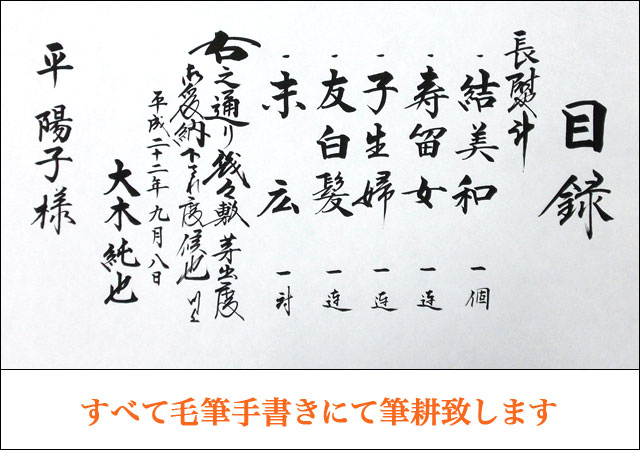 目録
長熨斗
一 結美和 一個
一 寿留女 一連
一 子生婦 一連
一 友白髪 一連
一 末広 一対
右之通り幾久敷芽出度
御受納下され度候也
平成二十二年九月八日
大木純也
平陽子様
すべて毛筆手書きにて筆耕致します